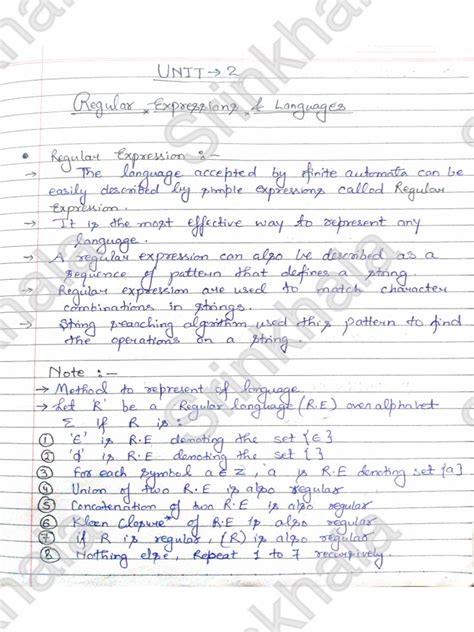 UNIT → 2
Regular Expressions & Languages
• Regular Expression :-
→ The language accepted by finite automata can be
easily described by simple expressions called Regular
Expression.
→ It is the most effective way to represent any
language.
→ A regular expression can also be described as a
sequence of pattern that defines a string.
→ Regular expression are used to match character
combinations in strings.
→ String searching algorithm used this pattern to find
the operations on a string.
Note :-
→ Method to represent of language
→ Let 'R' be a Regular language (R.E) over alphabet
Σ if R is :
① 'ϵ' is R.E denoting the set {ϵ}
② 'ϕ' is R.E denoting the set { }
③ For each symbol a ∈ Σ, 'a' is R.E denoting set {a}
④ Union of two R.E is also regular
⑤ Concatenation of two R.E is also regular
⑥ Kleen Closure* of R.E is also regular
⑦ if R is regular, (R) is also regular
⑧ Nothing else, Repeat 1 to 7 recursively.
Srinkhala